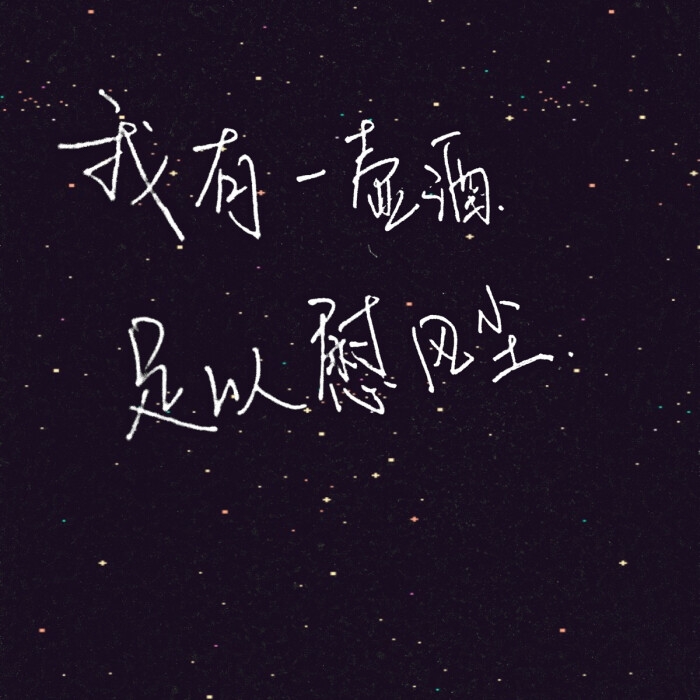 我有一壶酒.
足以慰风尘.